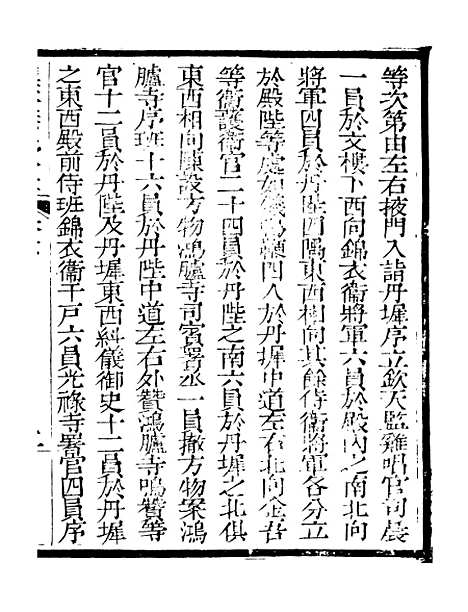 等次第由左右掖門入詣丹墀序立欽天監雞唱官司晨
一員於文樓下西向錦衣衞將軍六員於殿內之南北向
將軍四員於丹陛四隅東西相向其餘侍衞將軍各分立
於殿陛等處如儀鳴鞭四人於丹墀中道左右北向金吾
等衞護衞官二十四員於丹陛之南六員於丹墀之北俱
東西相向陳設方物鴻臚寺司賓署丞一員撤方物案鴻
臚寺序班十六員於丹陛中道左右外贊鴻臚寺鳴贊等
官十二員於丹陛及丹墀東西糾儀御史十二員於丹墀
之東西殿前侍班錦衣衞千戸六員光祿寺署官四員序